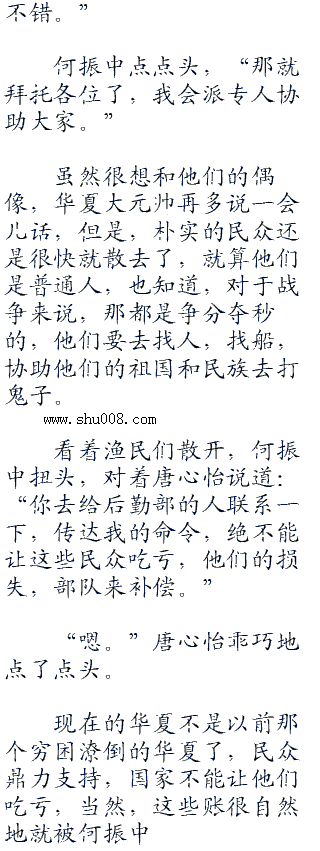 不错。”
何振中点点头，“那就
拜托各位了，我会派专人协
助大家。”
虽然很想和他们的偶
像，华夏大元帅再多说一会
儿话，但是，朴实的民众还
是很快就散去了，就算他们
是普通人，也知道，对于战
争来说，那都是争分夺秒
的，他们要去找人，找船，
协助他们的祖国和民族去打
鬼子。
www.shu008.com
看着渔民们散开，何振
中扭头，对着唐心怡说道：
“你去给后勤部的人联系一
下，传达我的命令，绝不能
让这些民众吃亏，他们的损
失，部队来补偿。”
“嗯。”唐心怡乖巧地
点了点头。
现在的华夏不是以前那
个穷困潦倒的华夏了，民众
鼎力支持，国家不能让他们
吃亏，当然，这些账很自然
地就被何振中